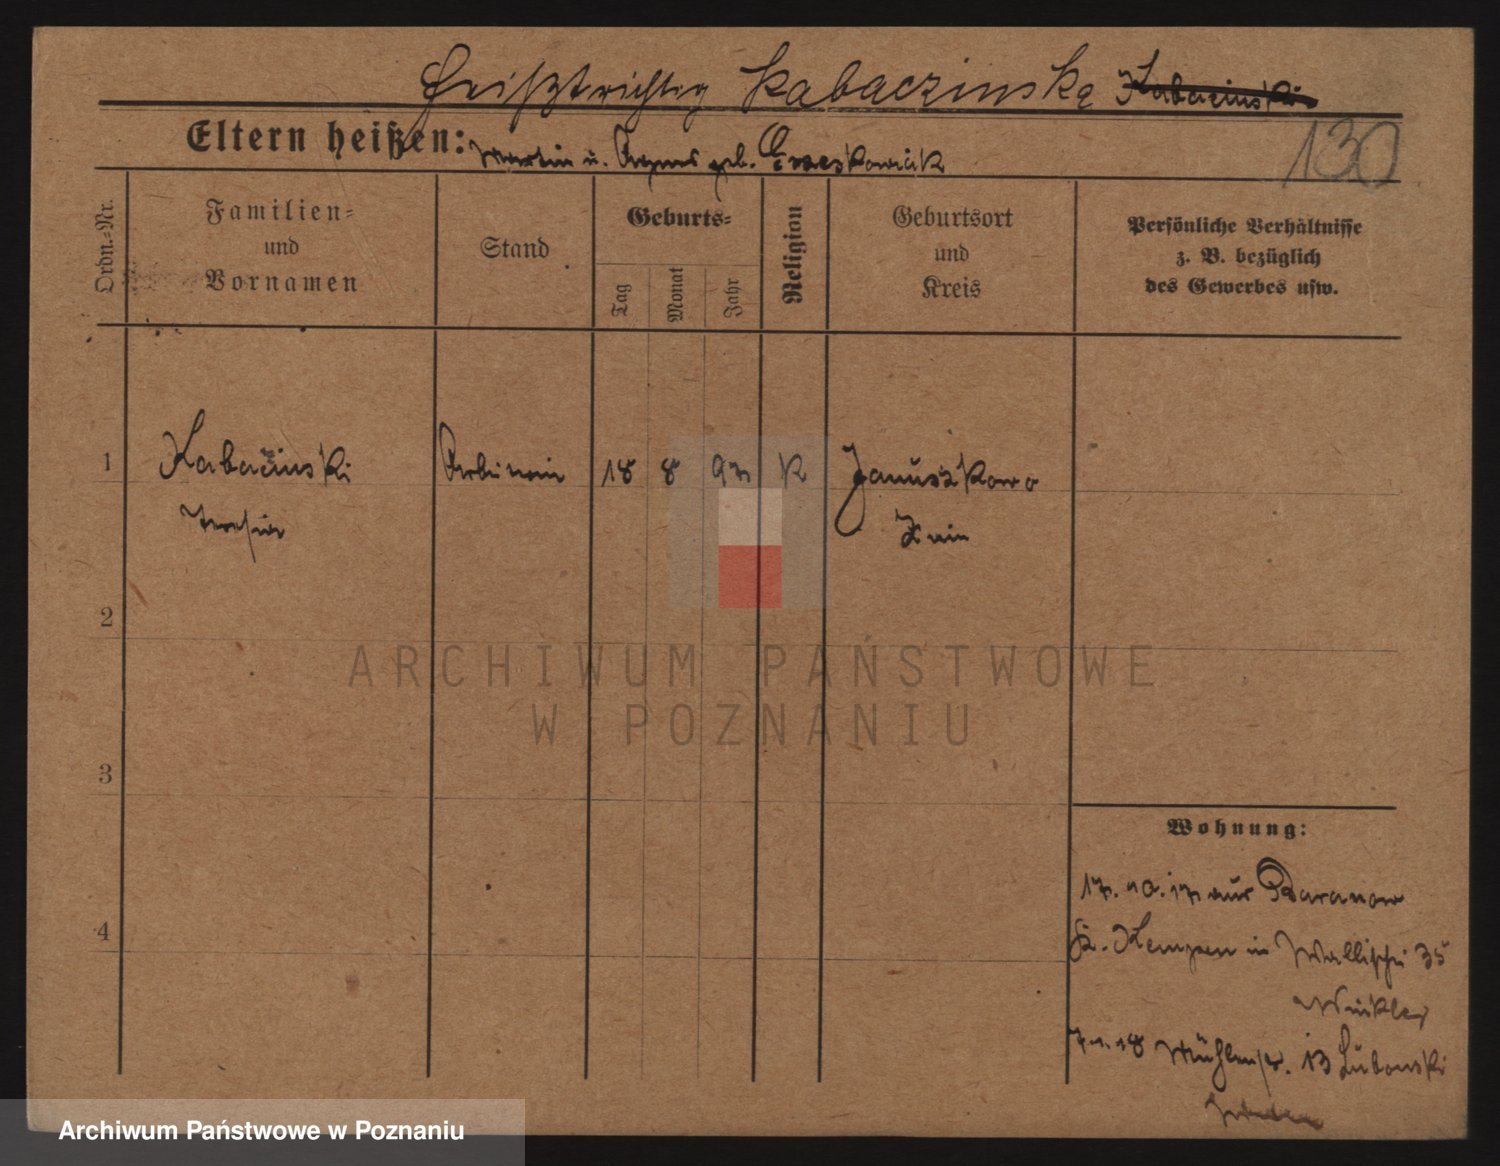 Kabaczinska Kabacinski
130
Eltern heißen: Martin u. Agnes geb. Grzeskowiak
Ordn.=Nr.
Familien=
und
Vornamen
Stand
Geburts=
Tag
Monat
Jahr
Religion
Geburtsort
und
Kreis
Persönliche Verhältnisse
z. B. bezüglich
des Gewerbes usw.
1
Kabacinski
Arbeiterin
18
8
97
K
Januszkowo
Znin
2
3
4
Wohnung:
17. 10. 17 aus Baranow
Kr. Kempen in Wallischei 35
Winkler
7. 1. 18 Mühlenstr. 13 Lubonski
ARCHIWUM PAŃSTWOWE
W POZNANIU
Archiwum Państwowe w Poznaniu